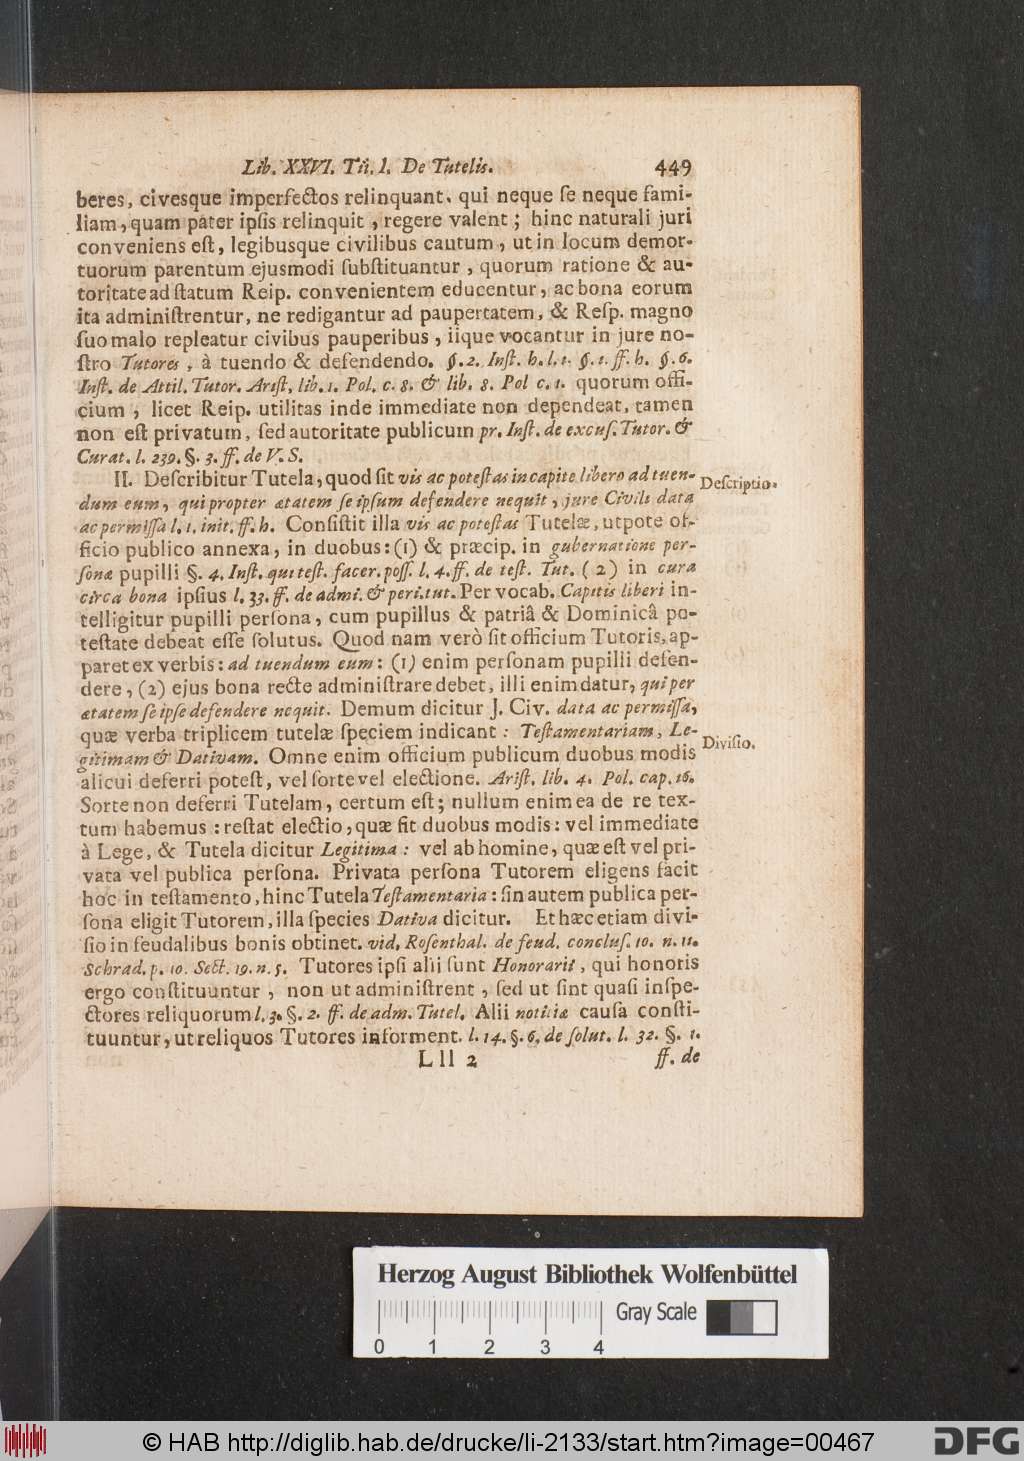 Lib. XXVI. Tit. 1. De Tutelis. 449
beres, civesque imperfectos relinquant, qui neque ſe neque fami-
liam, quam pater ipſis relinquit, regere valent; hinc naturali juri
conveniens eſt, legibusque civilibus cautum, ut in locum demor-
tuorum parentum ejusmodi ſubſtituantur, quorum ratione & au-
toritate ad ſtatum Reip. convenientem educentur, ac bona eorum
ita adminiſtrentur, ne redigantur ad paupertatem, & Reſp. magno
ſuo malo repleatur civibus pauperibus, iique vocantur in jure no-
ſtro Tutores, à tuendo & defendendo. §. 2. Inſt. h. l. 1. §. 1. ff. h. §. 6.
Inſt. de Attil. Tutor. Ariſt. lib. 1. Pol. c. 8. & lib. 8. Pol c. 1. quorum offi-
cium, licet Reip. utilitas inde immediate non dependeat, tamen
non eſt privatum, ſed autoritate publicum pr. Inſt. de excuſ. Tutor. &
Curat. l. 239. §. 3. ff. de V. S.
II. Deſcribitur Tutela, quod ſit vis ac poteſtas in capite libero ad tuen-
Deſcriptio.
dum eum, qui propter ætatem ſe ipſum defendere nequit, jure Civili data
ac permiſſa l. 1. init. ff. h. Conſiſtit illa vis ac poteſtas Tutelæ, utpote of-
ficio publico annexa, in duobus: (1) & præcip. in gubernatione per-
ſonæ pupilli §. 4. Inſt. qui teſt. facer. poſſ. l. 4. ff. de teſt. Tut. (2) in cura
circa bona ipſius l. 33. ff. de admi. & peri. tut. Per vocab. Capitis liberi in-
telligitur pupilli perſona, cum pupillus & patriâ & Dominicâ po-
teſtate debeat eſſe ſolutus. Quod nam verò ſit officium Tutoris, ap-
paret ex verbis: ad tuendum eum: (1) enim perſonam pupilli defen-
dere, (2) ejus bona recte adminiſtrare debet, illi enim datur, qui per
ætatem ſe ipſe defendere nequit. Demum dicitur J. Civ. data ac permiſſa,
quæ verba triplicem tutelæ ſpeciem indicant: Teſtamentariam, Le-
Diviſio.
gitimam & Dativam. Omne enim officium publicum duobus modis
alicui deferri poteſt, vel ſorte vel electione. Ariſt. lib. 4. Pol. cap. 16.
Sorte non deferri Tutelam, certum eſt; nullum enim ea de re tex-
tum habemus: reſtat electio, quæ fit duobus modis: vel immediate
à Lege, & Tutela dicitur Legitima: vel ab homine, quæ eſt vel pri-
vata vel publica perſona. Privata perſona Tutorem eligens facit
hoc in teſtamento, hinc Tutela Teſtamentaria: ſin autem publica per-
ſona eligit Tutorem, illa ſpecies Dativa dicitur. Et hæc etiam divi-
ſio in feudalibus bonis obtinet. vid. Roſenthal. de feud. concluſ. 10. n. 11.
Schrad. p. 10. Sect. 19. n. 5. Tutores ipſi alii ſunt Honorarii, qui honoris
ergo conſtituuntur, non ut adminiſtrent, ſed ut ſint quaſi inſpe-
ctores reliquorum l. 3. §. 2. ff. de adm. Tutel. Alii notitiæ cauſa conſti-
tuuntur, ut reliquos Tutores informent. l. 14. §. 6. de ſolut. l. 32. §. 1.
Lll 2 ff. de
Herzog August Bibliothek Wolfenbüttel
Gray Scale
0 1 2 3 4
© HAB http://diglib.hab.de/drucke/li-2133/start.htm?image=00467
DFG